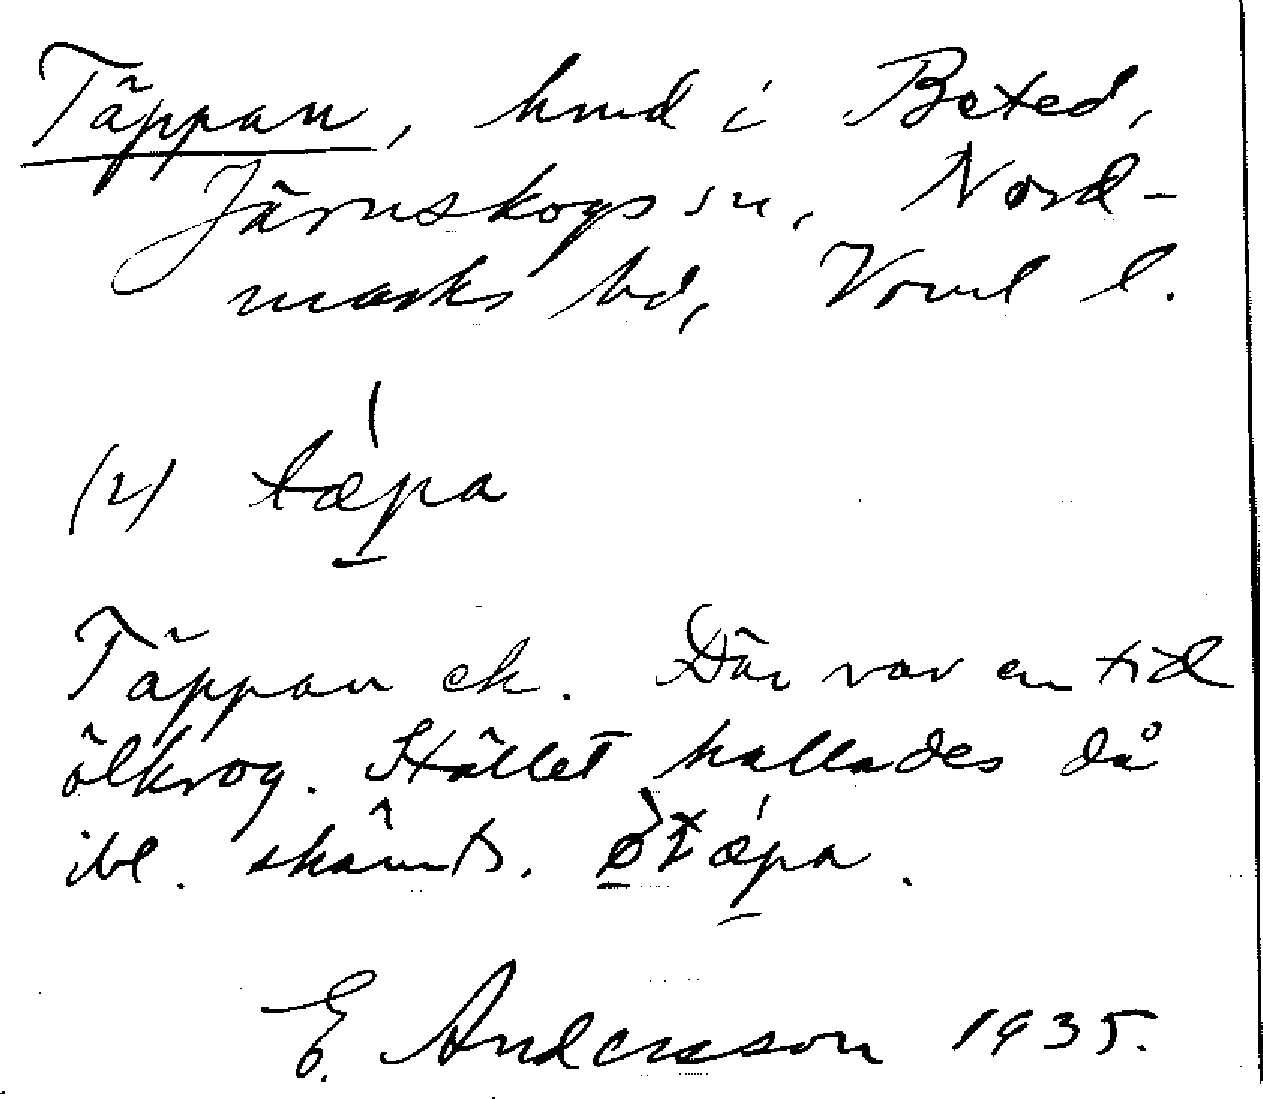 Täppan, hmd i Beted,
Järnskogs sn, Nord-
marks hd, Vrml l.
(2) tæpa
Täppan ek. Där var en tid
ölkrog. Stället kallades då
ibl. skämts. øltæpa.
E. Andersson 1935.